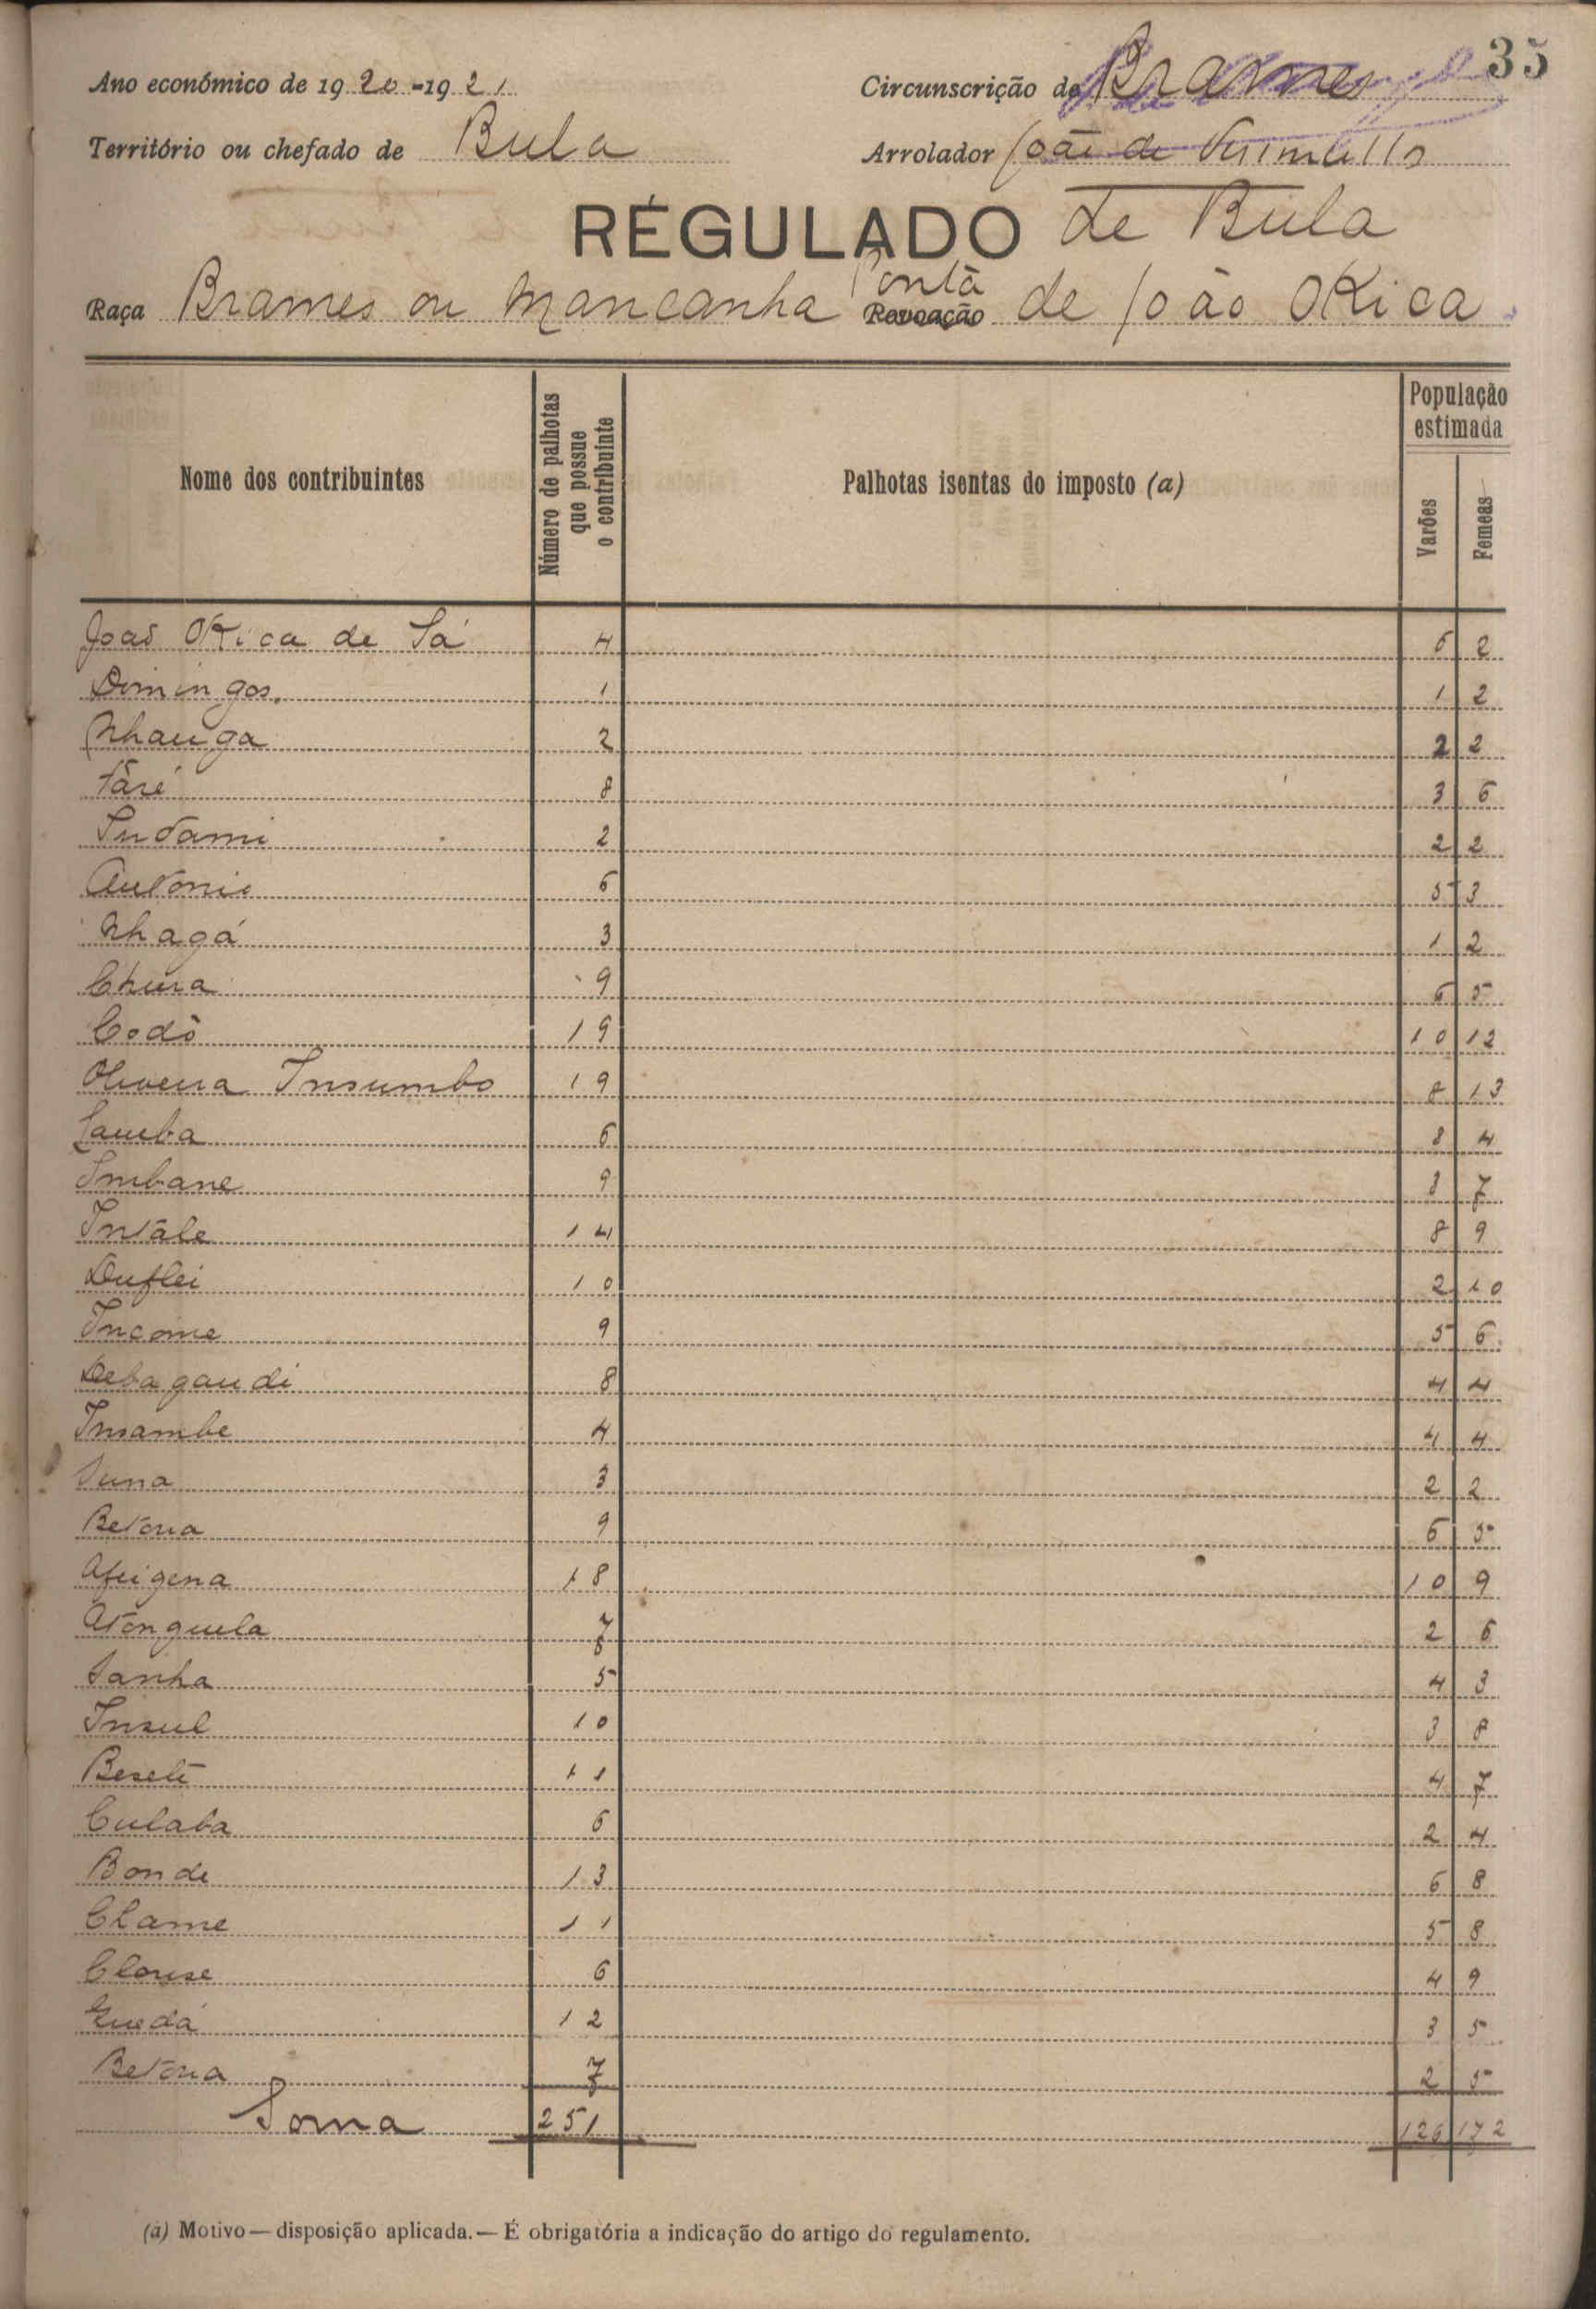 35
Ano económico de 1920-1921 Circunscrição de Brames
Território ou chefado de Bula Arrolador João de
RÉGULADO de Bula
Raça Brames ou Mancanha Ponta Povoação de João ORica
Nome dos contribuintes Número de palhotas que possue o contribuinte Palhotas isentas do imposto (a) População estimada
Varões Femeas
João ORica de Sá 4 6 2
Domingos 1 1 2
Nhauga 2 2 2
Táré 8 3 6
2 2 2
Antonio 6 5 3
Nhagá 3 1 2
9 6 5
Codô 19 10 12
Oliveira Insumbo 19 8 13
6 3 4
Imbane 9 3 7
Intále 14 8 9
10 2 10
Income 9 5 6
8 4 4
Insambe 4 4 4
3 2 2
9 6 5
18 10 9
Atonguela 7 2 6
Sanha 5 4 3
Insul 10 3 8
11 4 7
Culaba 6 2 4
Bonde 13 6 8
Clame 11 5 8
6 4 9
12 3 5
7 2 5
Soma 251 126 172
(a) Motivo — disposição aplicada. — É obrigatória a indicação do artigo do regulamento.